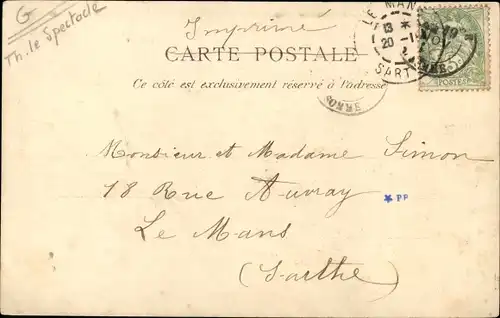 G
Th. le Spectacle
Imprimé
CARTE POSTALE
Ce côté est exclusivement réservé à l'adresse
LE MANS
13
20
SARTHE
POSTES
Monsieur et Madame Simon
18 Rue Auvray
* PP
Le Mans
(Sarthe)